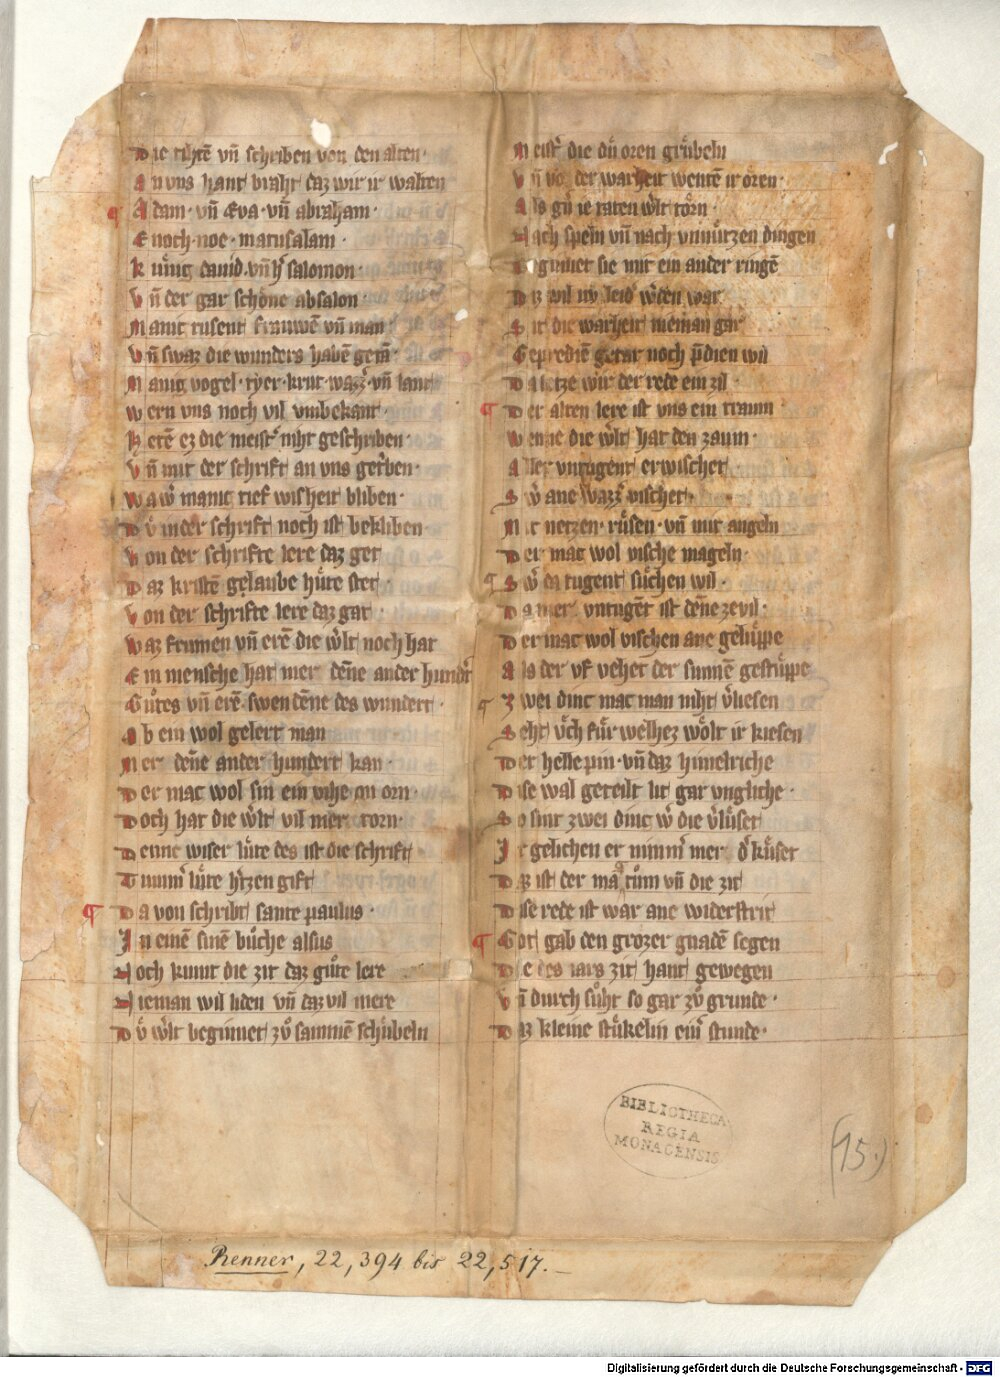 Die tihtē vn̄ schriben von den alten·
An vns hant braht daz wir ir walten
Adam· vn̄ Eva· vn̄ abraham·
Enoch· noe· matusalam·
kúnig dauid· vn̄ h᷑ salomon·
Vn̄ der gar schöne absalon·
Manic tusent frauwē vn̄ man
Vn̄ swaz die wunders habē
Manig vogel· tyer· krut· wazz᷑· vn̄ lant
Wern vns noch vil vnbekant·
Hetē ez die meist᷑ niht geschriben·
Vn̄ mit der schrift an vns
manic tief wisheit bliben·
in der schrift noch ist bekliben·
Von der schrifte lere daz get
Daz kristē gelaube hůte stet
Von der schrifte lere daz gat
Waz frumen vn̄ erē die w᷑lt noch hat
Ein mensche hat mer dēne ander hund᷑t
Gůtes vn̄ erē swen dēne des wundert·
Ob ein wol gelert man
Mer dēne ander hundert kan·
Der mac wol sin ein vihe an orn·
Doch hat die w᷑lt vil mer torn·
Denne wiser lůte des ist die schrift
Tumm᷑ lůte h᷑tzen gift
Da von schribt sante paulus·
In einē sinē bůche alsus
Noch kumt die zit daz gůte lere
Nieman wil liden vn̄ daz vil mere
Dů w᷑lt beginnet zů sammē
Meist᷑ die oren grůbeln
Vn̄ von der warheit wentē ir oren·
Als ie taten w᷑lt törn
Nach speln vn̄ nach vnnůtzen dingen
Beginnet sie mit ein ander ringē
Diz wil nv leid᷑ w᷑den war
Sit die warheit nieman gar
Gepredien getar noch p᷑dien wil
Da setze wir der rede ein zil
Der alten lere ist vns ein traum
Wenne die w᷑lt hat den zaum·
Aller vntugent erwischet
Sw᷑ ane wazz᷑ vischet
Mit netzen· růsen· vn̄ mit angeln
Der mac wol vische mageln·
Sw᷑ da tugent sůchen wil·
Da mer vntugēt ist dēne zevil·
Der mac wol vischen ane
Als der vf der sunnē
Zwei dinc mac man niht v᷑liesen
Seht vch fůr welhez wölt ir kiesen
Der helle pin· vn̄ daz himelriche
Dise wal geteilt sit gar vngliche·
So sint zwei dinc w᷑ die v᷑lůset
Ir gelichen er nimm᷑ mer
Daz ist der vn̄ die zit
Dise rede ist war ane widerstrit
Got gab den grozer gnadē segen
Die des iars zit hant gewegen
Vn̄ durch sůht so gar zů grunde·
Daz kleine stůkelin ein᷑ stunde·
BIBLIOTHECA
REGIA
MONACENSIS
(15.)
Renner, 22,394 bis 22,517.—
Digitalisierung gefördert durch die Deutsche Forschungsgemeinschaft - DFG